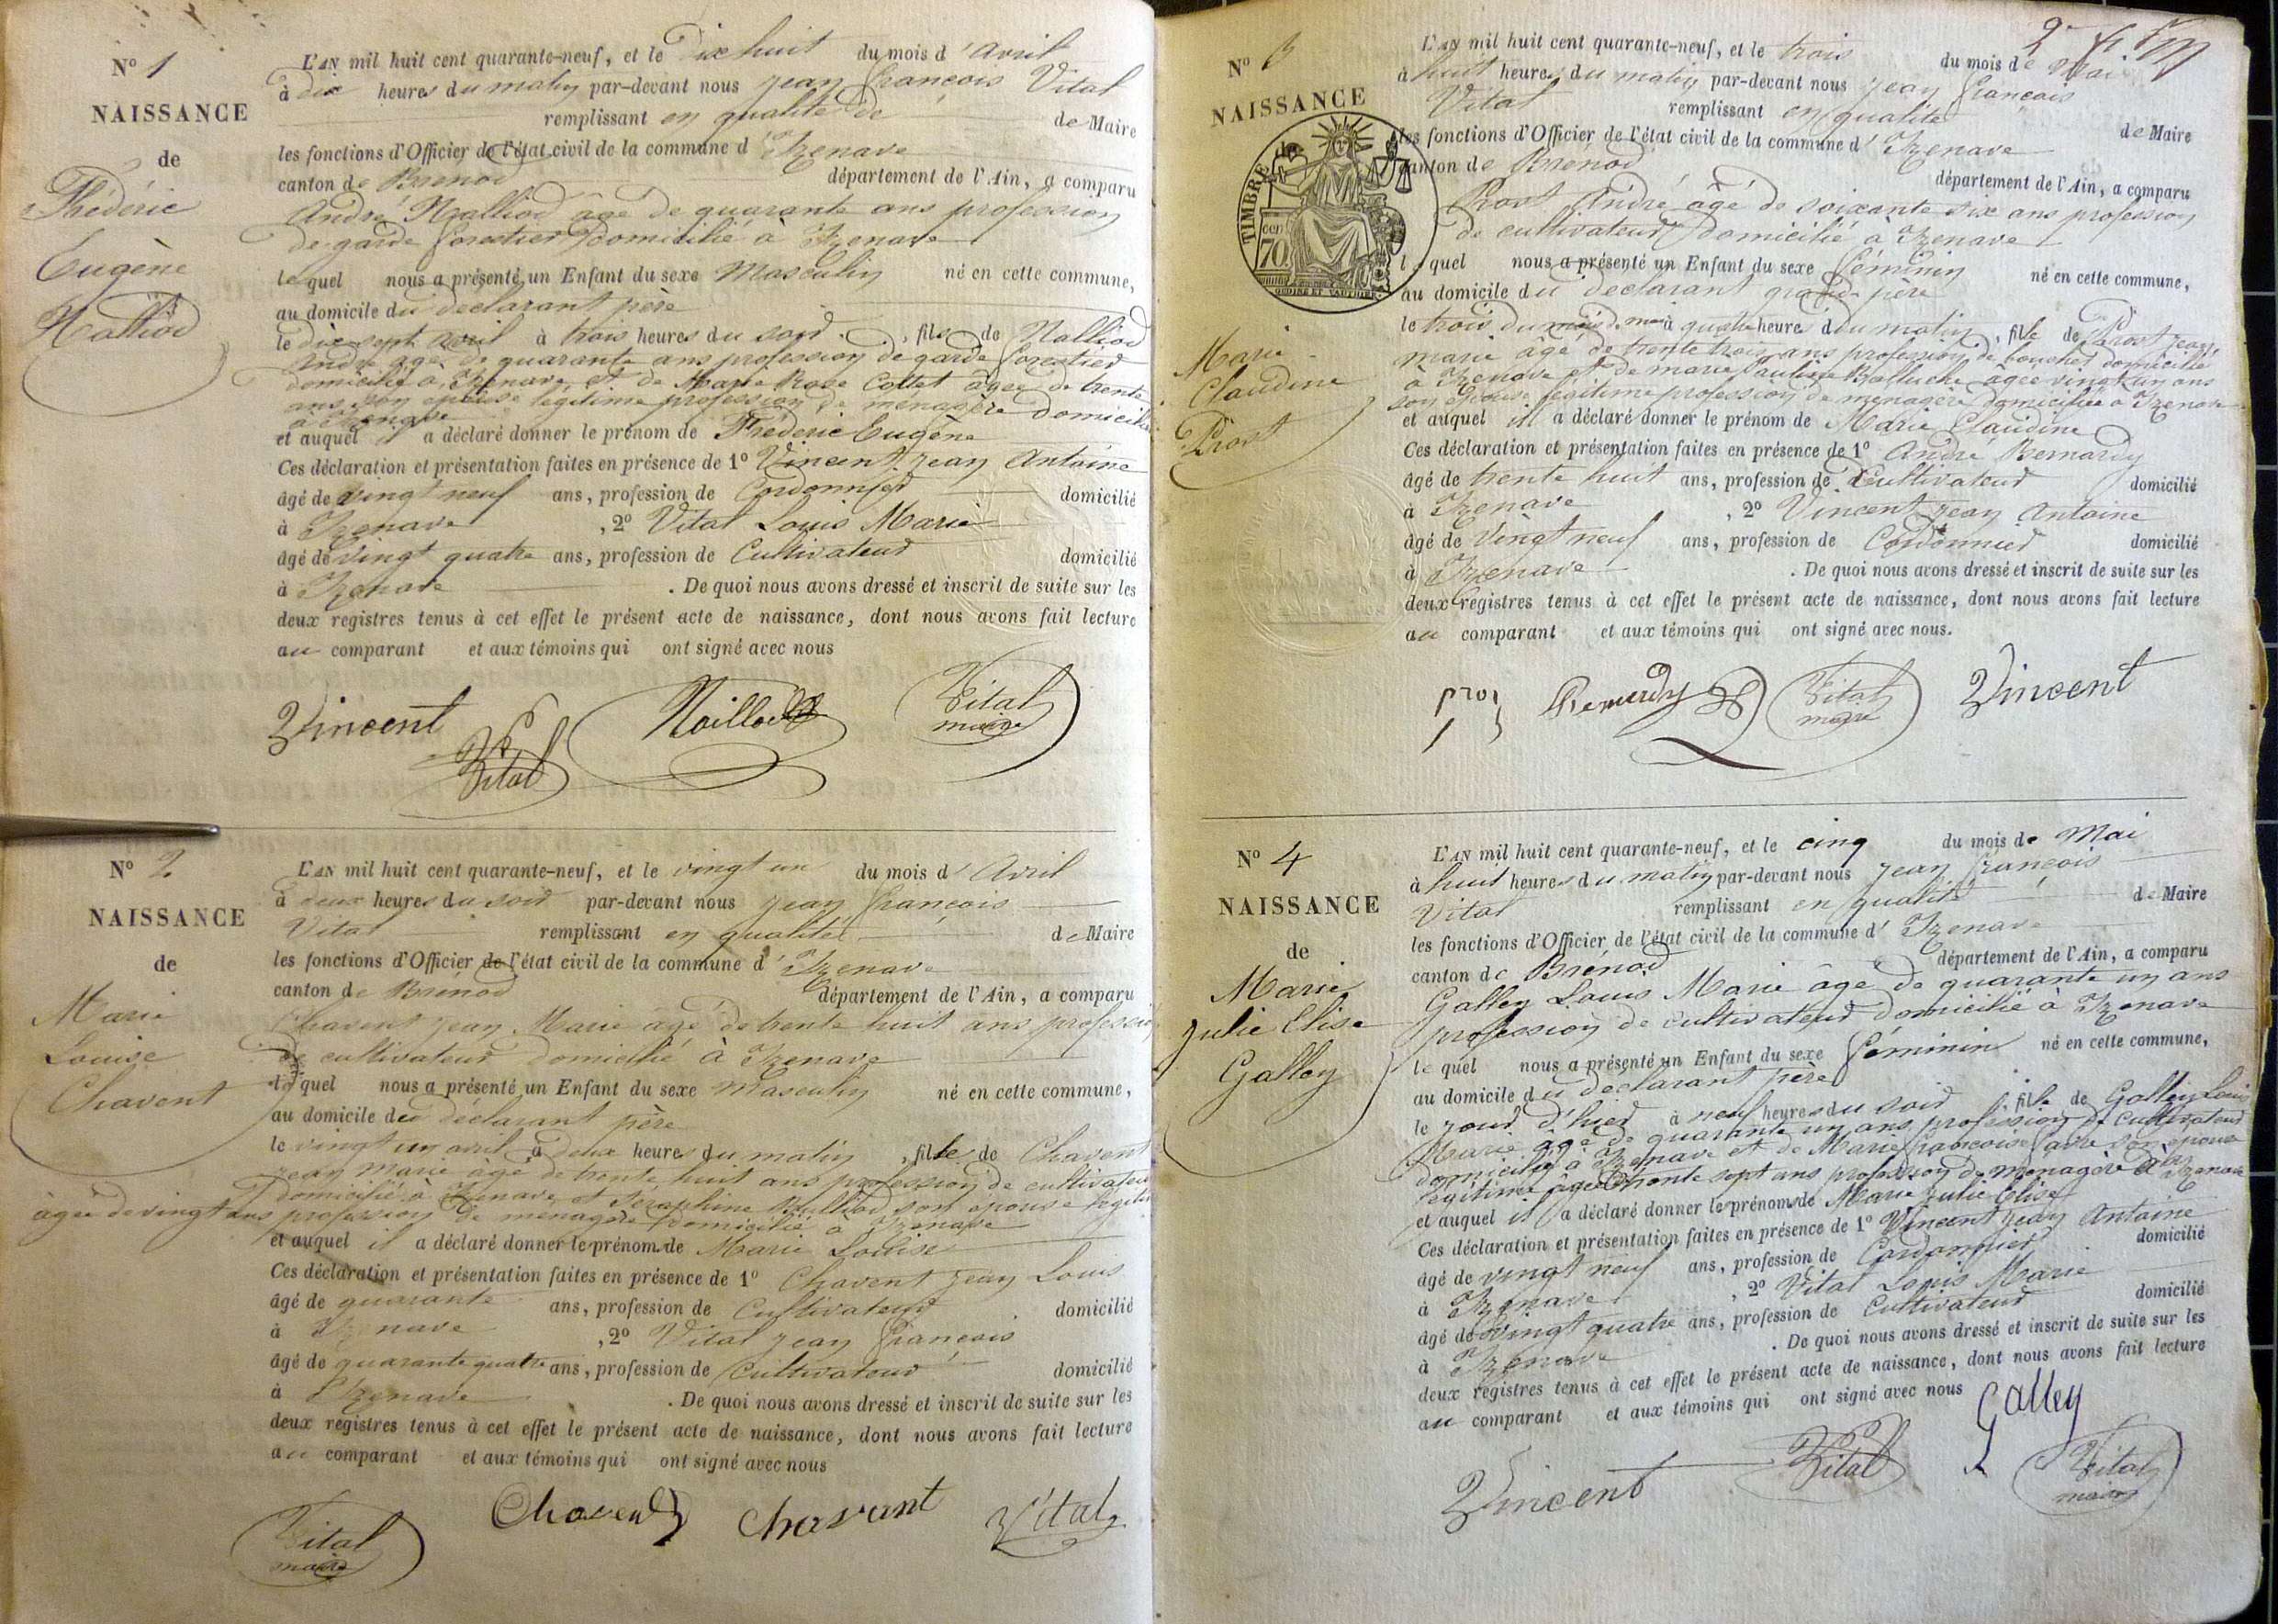 N° 1
NAISSANCE
de
Fhédéric
Eugène
Nalliod
L'AN mil huit cent quarante-neuf, et le Dix huit du mois d'Avril
à dix heures du matin par-devant nous Jean François Vital
remplissant en qualité de de Maire
les fonctions d'Officier de l'état civil de la commune d'Izenave
canton de Brénod département de l'Ain, a comparu
André Nalliod âgé de quarante ans profession
de garde forestier domicilié à Izenave
lequel nous a présenté un Enfant du sexe Masculin né en cette commune,
au domicile du déclarant père
le dix sept avril à trois heures du soir, fils de Nalliod
André âgé de quarante ans profession de garde forestier
domicilié à Izenave et de Marie Rose Collet âgée de trente
ans son épouse légitime profession de ménagère domicilié
à Izenave
et auquel il a déclaré donner le prénom de Fhédéric Eugène
Ces déclaration et présentation faites en présence de 1° Vincent Jean Antoine
âgé de vingt neuf ans, profession de Cordonnier domicilié
à Izenave, 2° Vital Louis Marie
âgé de vingt quatre ans, profession de Cultivateur domicilié
à Izenave. De quoi nous avons dressé et inscrit de suite sur les
deux registres tenus à cet effet le présent acte de naissance, dont nous avons fait lecture
au comparant et aux témoins qui ont signé avec nous
Vincent Vital Nalliod Vital
maire
N° 2
NAISSANCE
de
Marie
Louise
Chavent
L'AN mil huit cent quarante-neuf, et le vingt un du mois d'Avril
à deux heures du soir par-devant nous Jean François
Vital remplissant en qualité de Maire
les fonctions d'Officier de l'état civil de la commune d'Izenave
canton de Brénod département de l'Ain, a comparu
Chavent Jean Marie âgé de trente huit ans profession
de cultivateur domicilié à Izenave
lequel nous a présenté un Enfant du sexe Masculin né en cette commune,
au domicile du déclarant père
le vingt un avril à deux heures du matin, fille de Chavent
Jean Marie âgé de trente huit ans profession de cultivateur
domicilié à Izenave et Séraphine son épouse légitime
âgée de vingt ans profession de ménagère domicilié à Izenave
et auquel il a déclaré donner le prénoms de Marie Louise
Ces déclaration et présentation faites en présence de 1° Chavent Jean Louis
âgé de quarante ans, profession de Cultivateur domicilié
à Izenave, 2° Vital Jean François
âgé de quarante quatre ans, profession de Cultivateur domicilié
à Izenave. De quoi nous avons dressé et inscrit de suite sur les
deux registres tenus à cet effet le présent acte de naissance, dont nous avons fait lecture
au comparant et aux témoins qui ont signé avec nous
Vital
maire
Chavent Chavant Vital
2
N° 3
NAISSANCE
de
TIMBRE
70
Marie
Claudine
Prost
L'AN mil huit cent quarante-neuf, et le trois du mois de Mai
à huit heures du matin par-devant nous Jean François
Vital remplissant en qualité de Maire
les fonctions d'Officier de l'état civil de la commune d'Izenave
canton de Brénod département de l'Ain, a comparu
Prost André âgé de soixante six ans profession
de cultivateur domicilié à Izenave
lequel nous a présenté un Enfant du sexe féminin né en cette commune,
au domicile du déclarant grand père
le trois du mois de mai à quatre heures du matin, fille de Prost Jean
marie âgé de trente trois ans profession de boucher domicilié
à Izenave et de marie Pauline Balluche âgée vingt un ans
son épouse légitime profession de ménagère domiciliée à Izenave
et auquel il a déclaré donner le prénom de Marie Claudine
Ces déclaration et présentation faites en présence de 1° André Bernardy
âgé de trente huit ans, profession de Cultivateur domicilié
à Izenave, 2° Vincent Jean Antoine
âgé de Vingt neuf ans, profession de Cordonnier domicilié
à Izenave. De quoi nous avons dressé et inscrit de suite sur les
deux registres tenus à cet effet le présent acte de naissance, dont nous avons fait lecture
au comparant et aux témoins qui ont signé avec nous.
Bernardy Vital Vincent
maire
N° 4
NAISSANCE
de
Marie
Julie Elise
Galley
L'AN mil huit cent quarante-neuf, et le cinq du mois de Mai
à huit heures du matin par-devant nous Jean François
Vital remplissant en qualité de Maire
les fonctions d'Officier de l'état civil de la commune d'Izenave
canton de Brénod département de l'Ain, a comparu
Galley Louis Marie âgé de quarante un ans
profession de cultivateur domicilié à Izenave
lequel nous a présenté un Enfant du sexe féminin né en cette commune,
au domicile du déclarant père
le jour d'hier à neuf heures du soir, fille de Galley Louis
Marie âgé de quarante un ans profession de cultivateur
domicilié à Izenave et de Marie Françoise favre son épouse
légitime âgée trente sept ans profession de ménagère à Izenave
et auquel il a déclaré donner le prénoms de Marie Julie Elise
Ces déclaration et présentation faites en présence de 1° Vincent Jean Antoine
âgé de vingt neuf ans, profession de Cordonnier domicilié
à Izenave, 2° Vital Louis Marie
âgé de vingt quatre ans, profession de Cultivateur domicilié
à Izenave. De quoi nous avons dressé et inscrit de suite sur les
deux registres tenus à cet effet le présent acte de naissance, dont nous avons fait lecture
au comparant et aux témoins qui ont signé avec nous
Galley
Vincent Vital Vital
maire